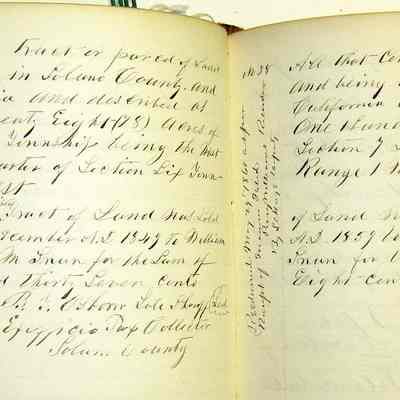 tract or parcel of Land
in Solano County and
ia and described as
enty Eight (78) Acres of
Township being the West
uarter of Section Six Town-
st
Tract of Land was Sold
cember A.D. 1859 to William
M Inan for the Sum of
d thirty Seven Cents
Sole Shffs Ded
Exofficio Tax Collector
Solano County
No 38
Redeemed May 29 1860 as per
Receipt of
All that Cer
and being i
California a
One Hund
Section 7
Range 1 W
of Land w
A.D. 1859 to
Inan for t
Eight Cen